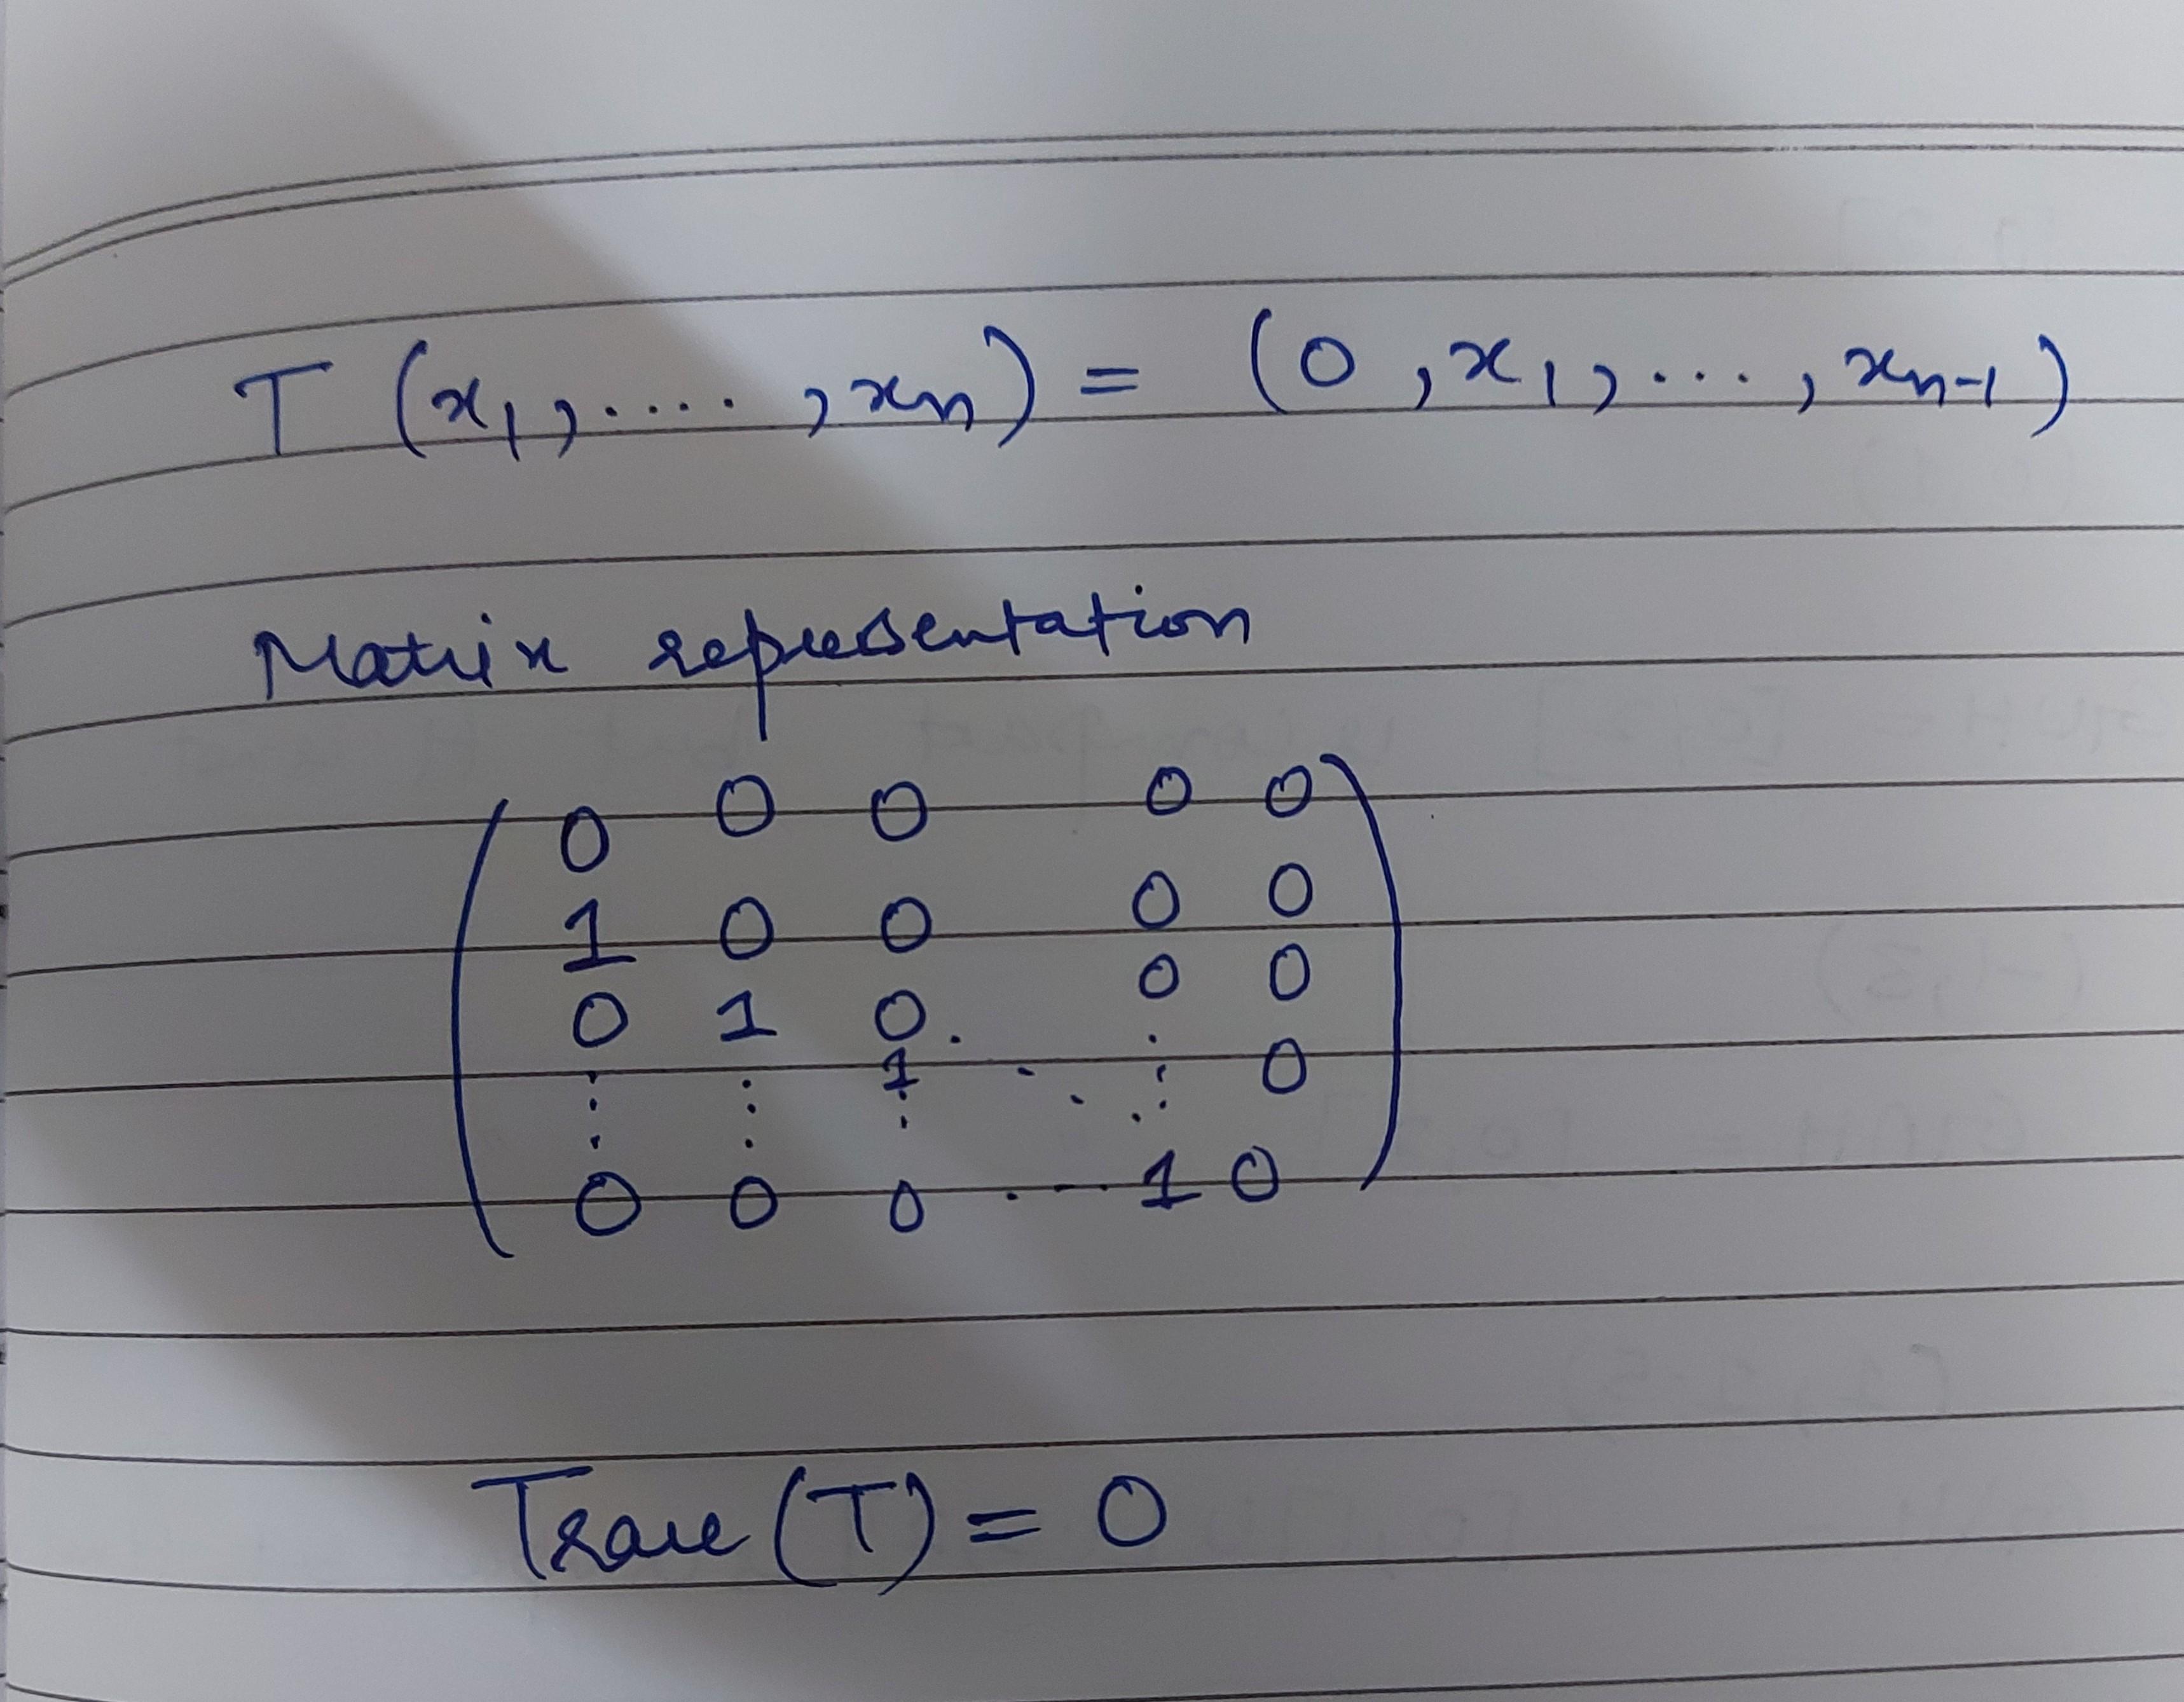 T (x₁, ...., xₙ) = (0, x₁, ..., xₙ₋₁)
Matrix representation
0 0 0 0 0
1 0 0 0 0
0 1 0 . 0 0
⋮ ⋮ 1 ⋱ ⋮ 0
0 0 0 . -- 1 0
Trace (T) = 0